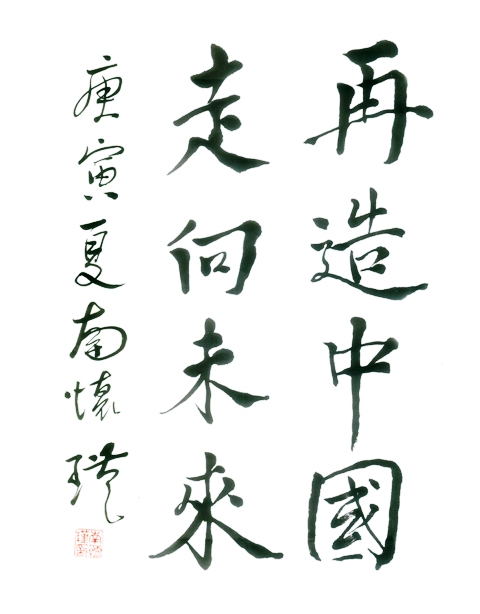 再造中國
走向未來
庚寅夏南懷瑾